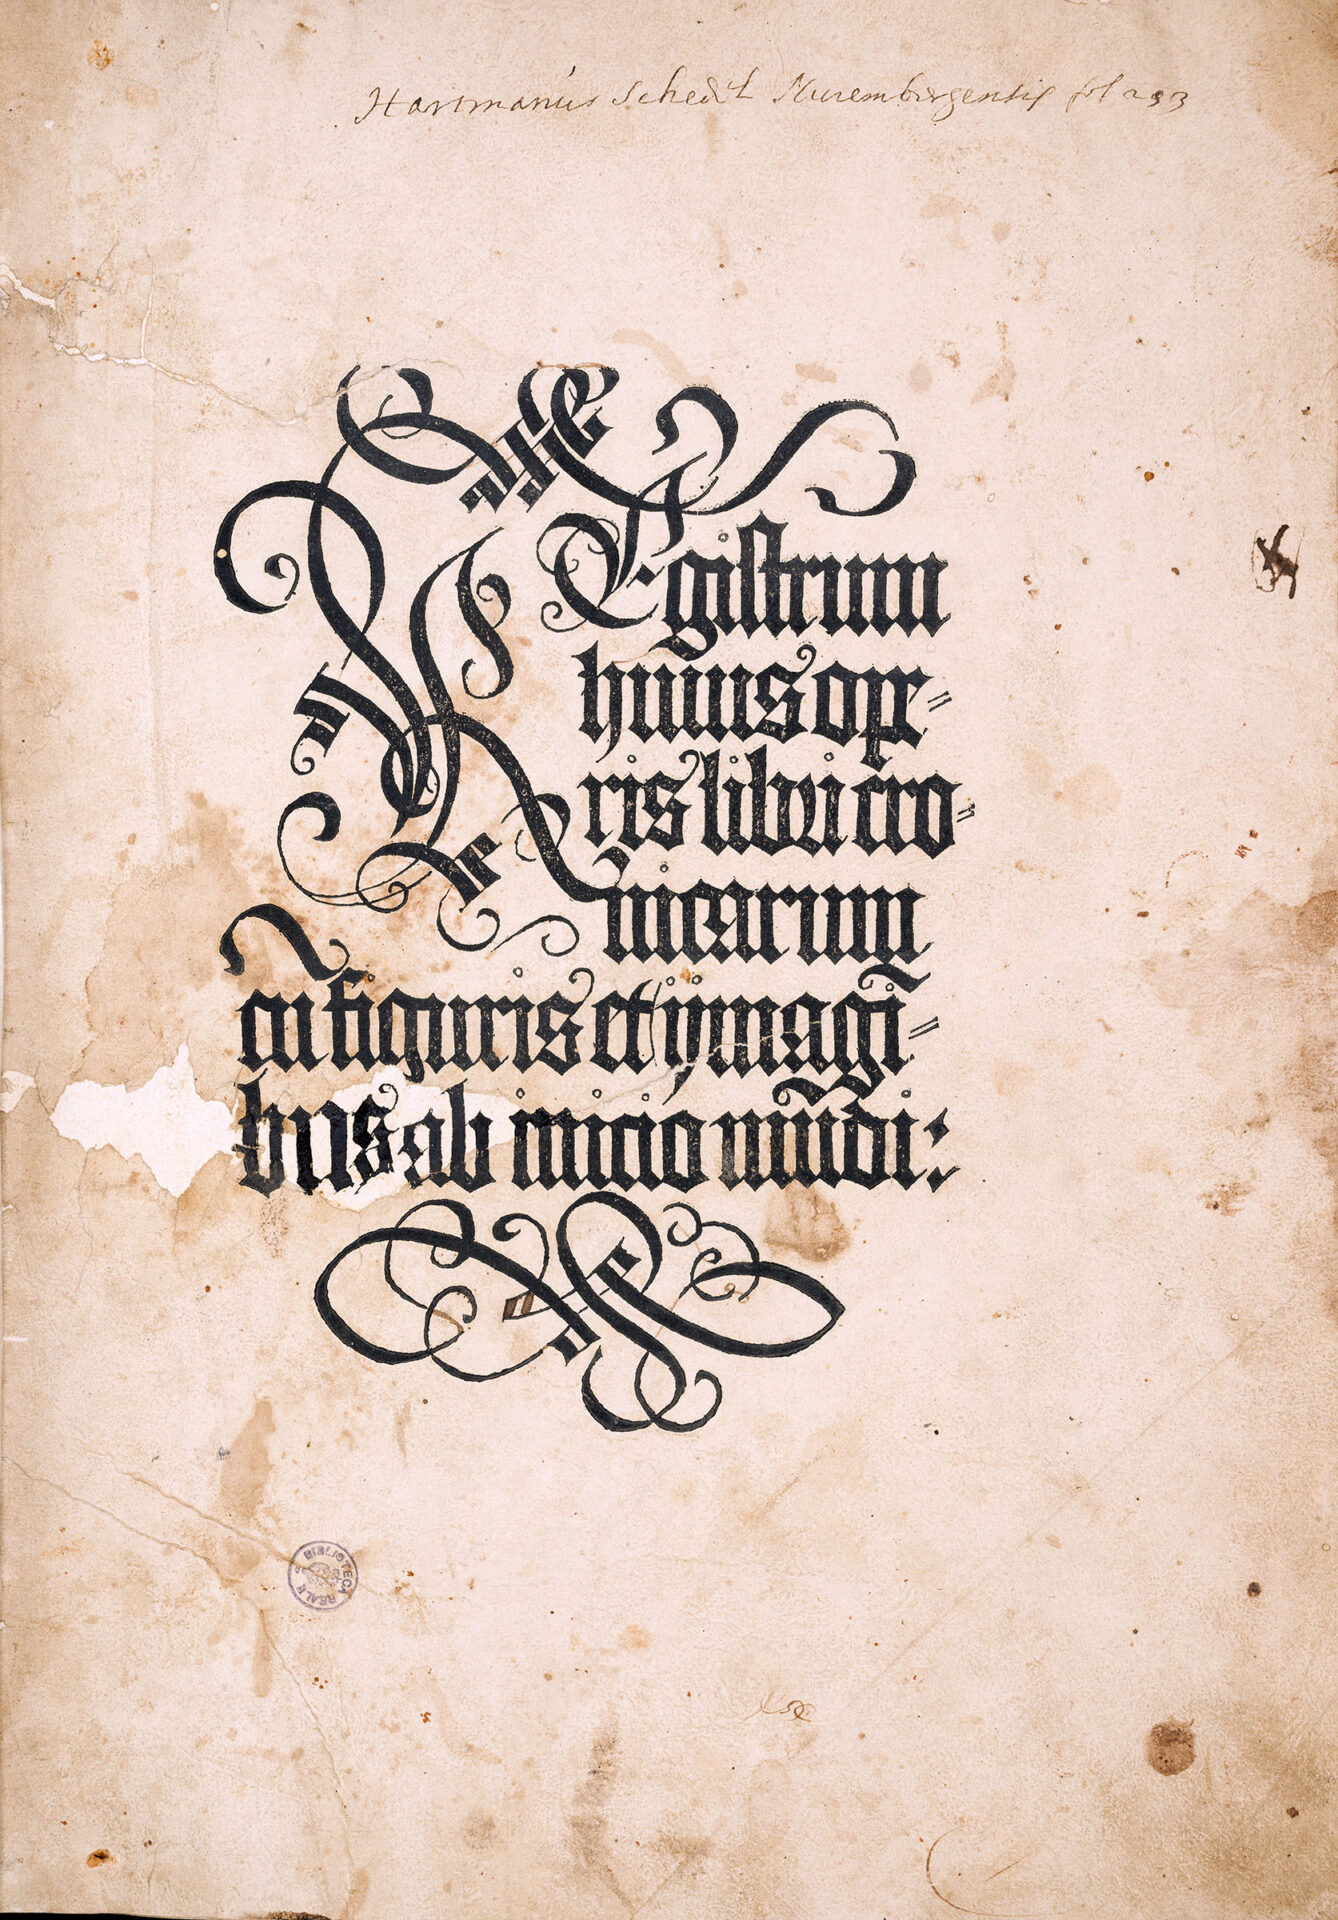 Hartmanus Schedel Nurembergensis fol 293
REgistrum
huius ope-
ris libri cro-
nicarum
cū figuris et ymagī-
bus ab inicio mūdi:
BIBLIOTECA REALE